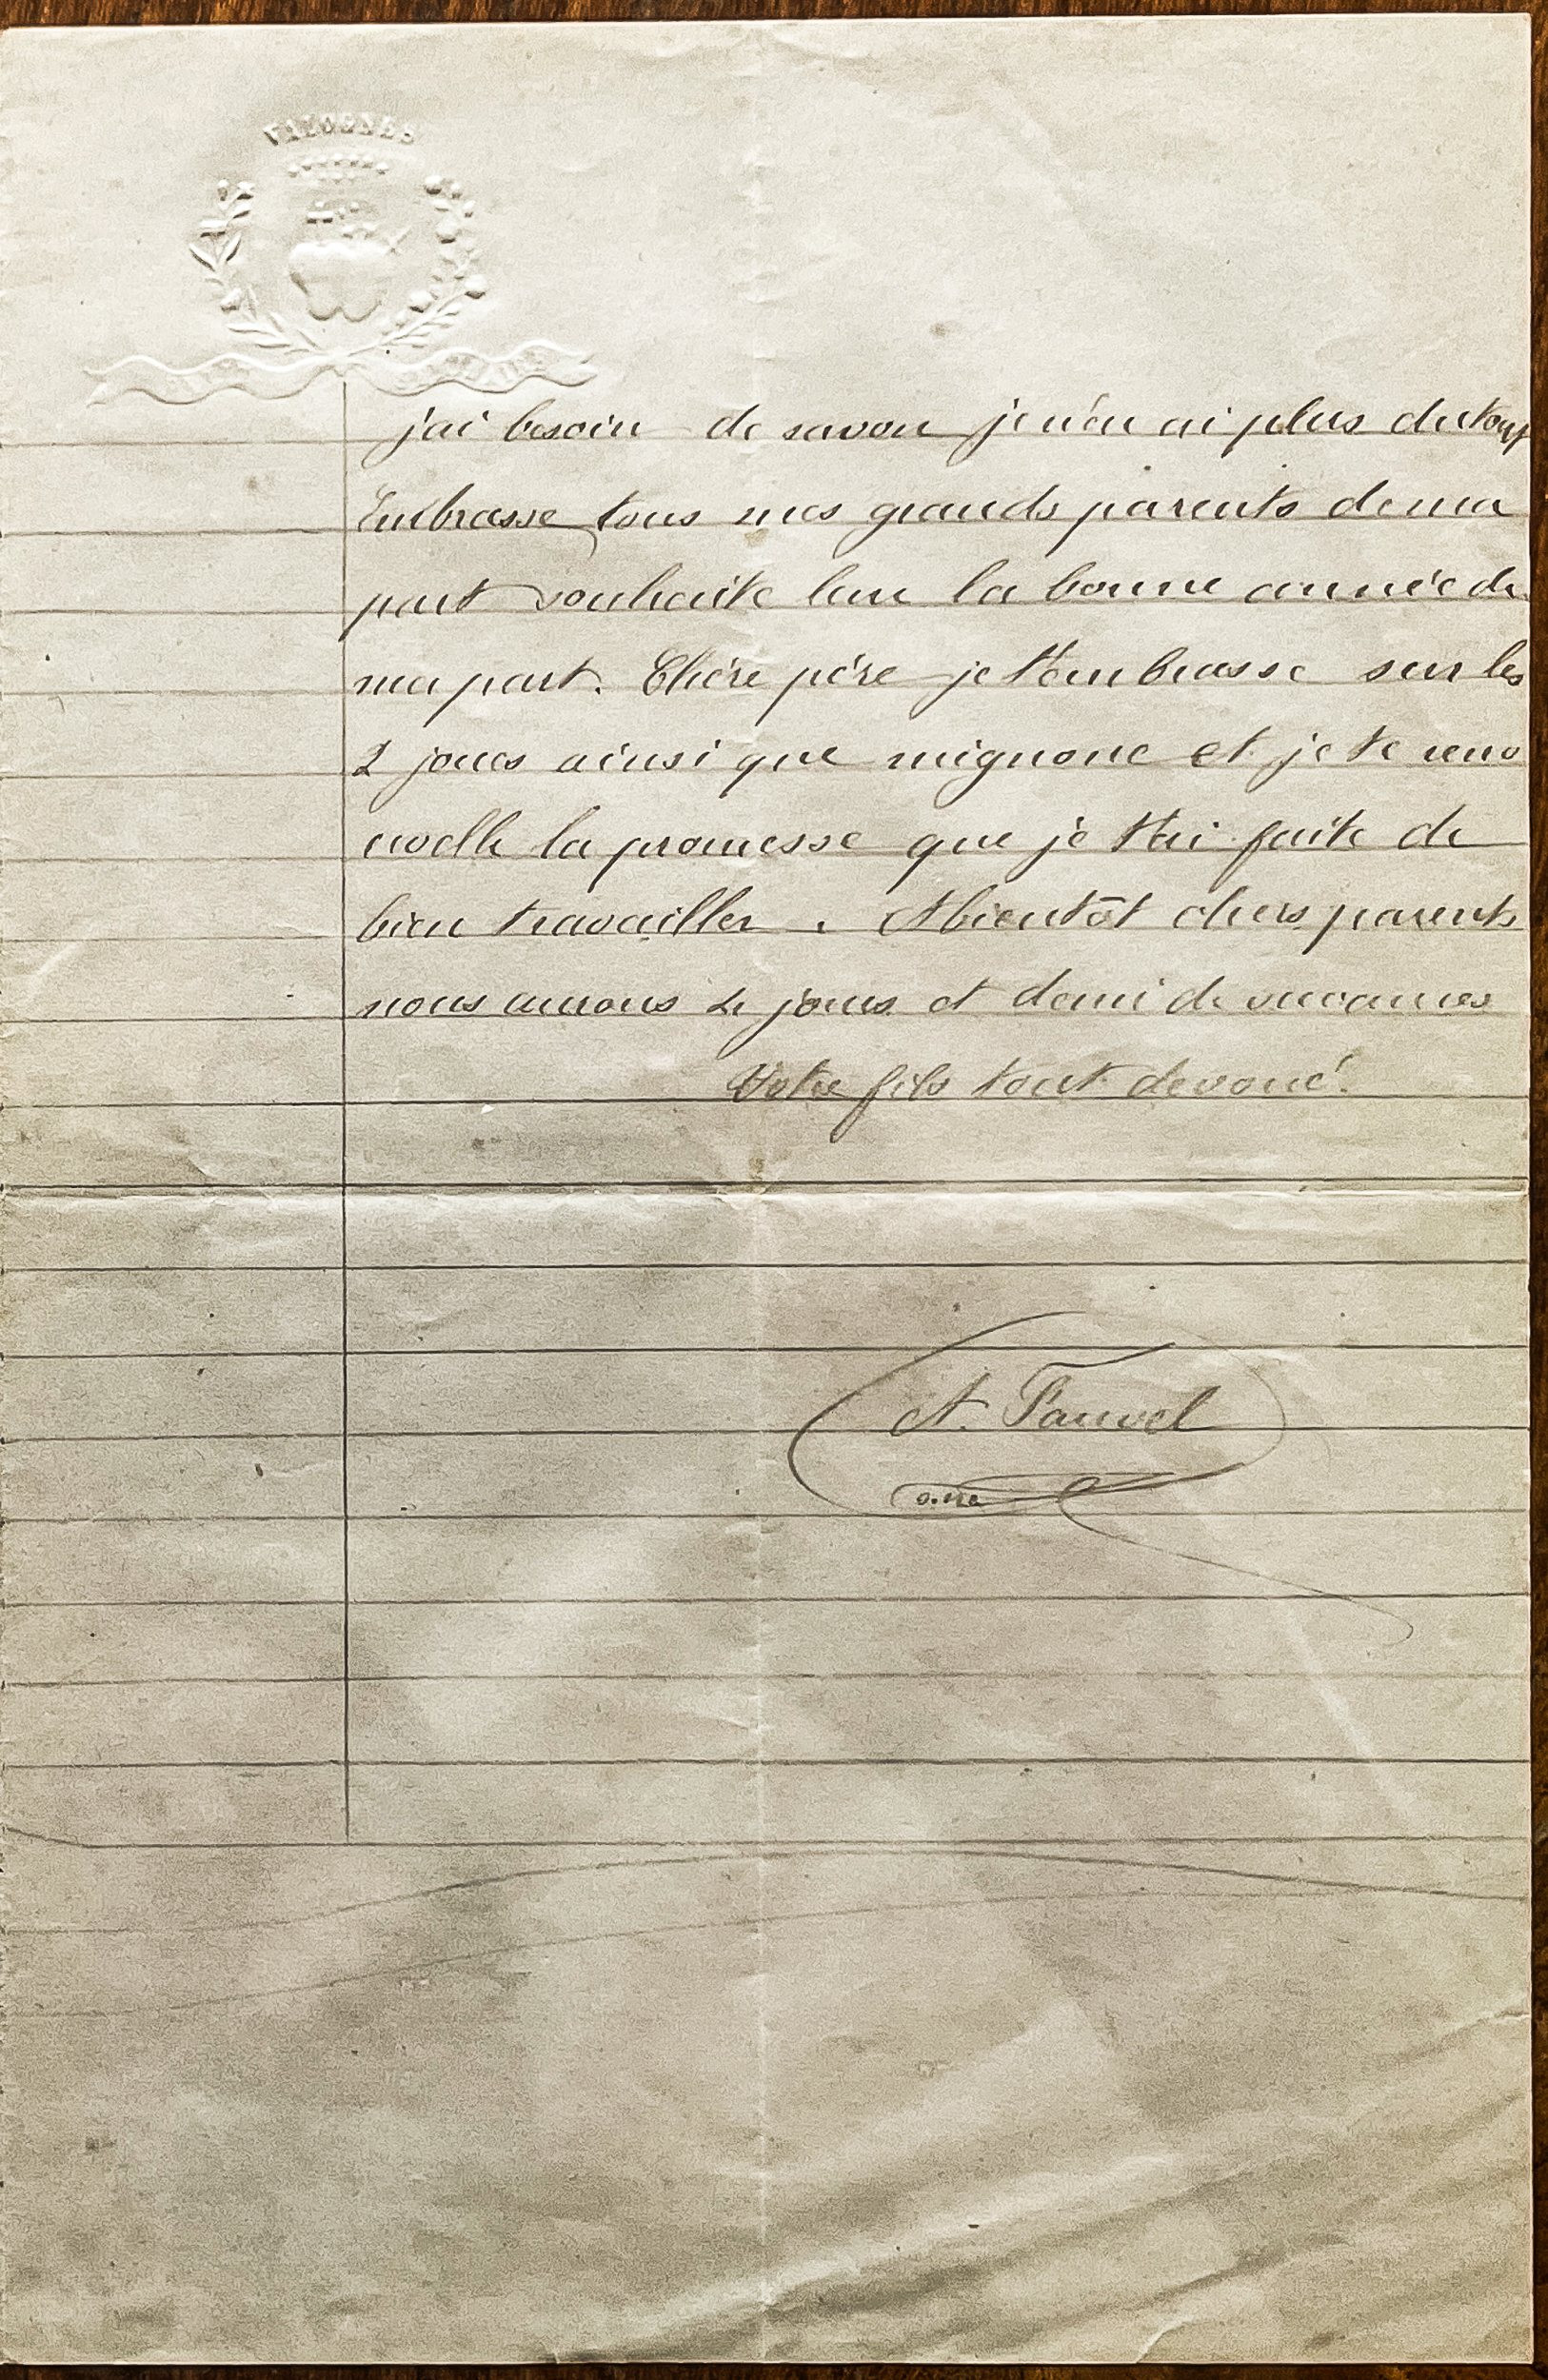 VALOGNES
j'ai besoin de savon je n'en ai plus du tout
Embrasse tous mes grands parents de ma
part souhaite leur la bonne année de
ma part. Chére pére je t'embrasse sur les
2 joues ainsi que mignone et je te reno
uvelle la promesse que je t'ai faite de
bien travailler. Abientôt chers parents
nous aurons 4 jours et demi de vacances
Votre fils tout devoué.
A. Fauvel